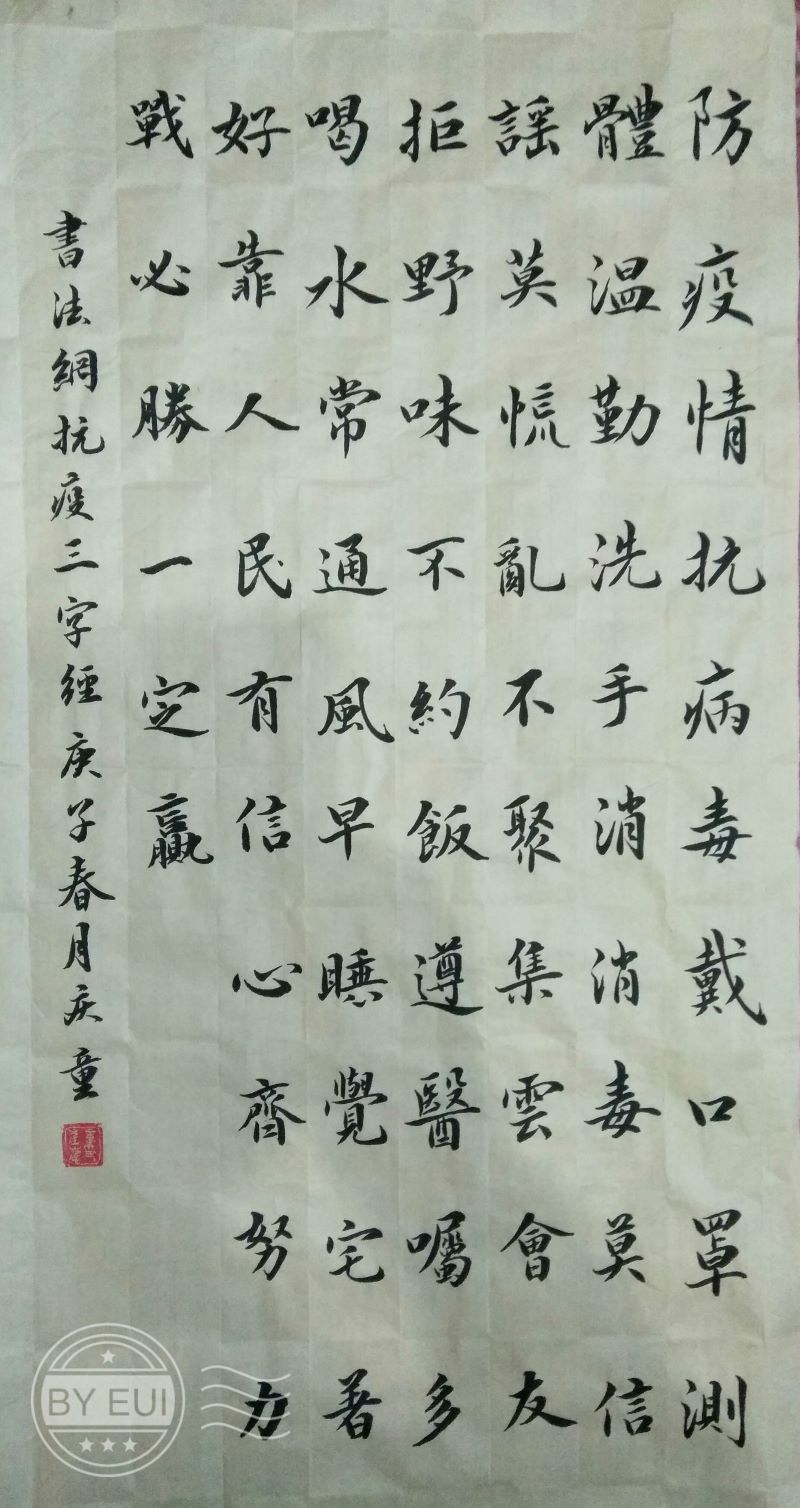 防疫情抗病毒戴口罩測
體温勤洗手消消毒莫信
謡莫慌亂不聚集雲會友
拒野味不約飯遵醫囑多
喝水常通風早睡覺宅著
好靠人民有信心齊努力
戰必勝一定贏
書法網抗疫三字經庚子春月庆童
BY EUI